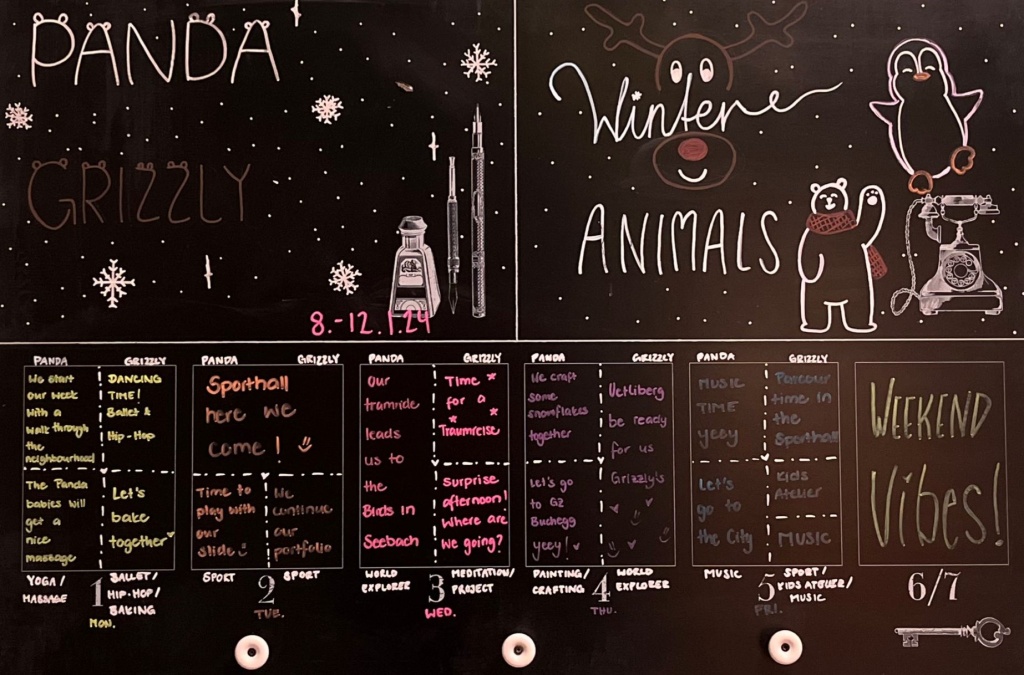 PANDA
GRIZZLY
8.-12.1.24
Wintere
ANIMALS
PANDA
GRIZZLY
We start
our week
with a
walk through
the
neighbourhood
DANCING
TIME!
Ballet &
Hip-Hop
The Panda
babies will
get a
nice
massage
Let's
bake
together
YOGA/
MASSAGE
1
MON.
BALLET/
HIP-HOP/
BAKING
PANDA
GRIZZLY
Sporthall
here we
come!
Time to
play with
our
slide
We
continue
our
portfolio
SPORT
2
TUE.
SPORT
PANDA
GRIZZLY
Our
tramride
leads
us to
the
Birds in
Seebach
Time
for a
Traumreise
Surprise
afternoon!
Where are
we going?
WORLD
EXPLORER
3
WED.
MEDITATION/
PROJECT
PANDA
GRIZZLY
We craft
some
snowflakes
together
Let's go
to GZ
Buchegg
yeey!
Uetliberg
be ready
for us
Grizzly's
PAINTING/
CRAFTING
4
THU.
WORLD
EXPLORER
PANDA
GRIZZLY
MUSIC
TIME
yeey
Let's
go to
the City
Parcour
time in
the
Sporthall
Kids
Atelier
MUSIC
MUSIC
5
FRI.
SPORT/
KIDS ATELIER/
MUSIC
WEEKEND
Vibes!
6/7